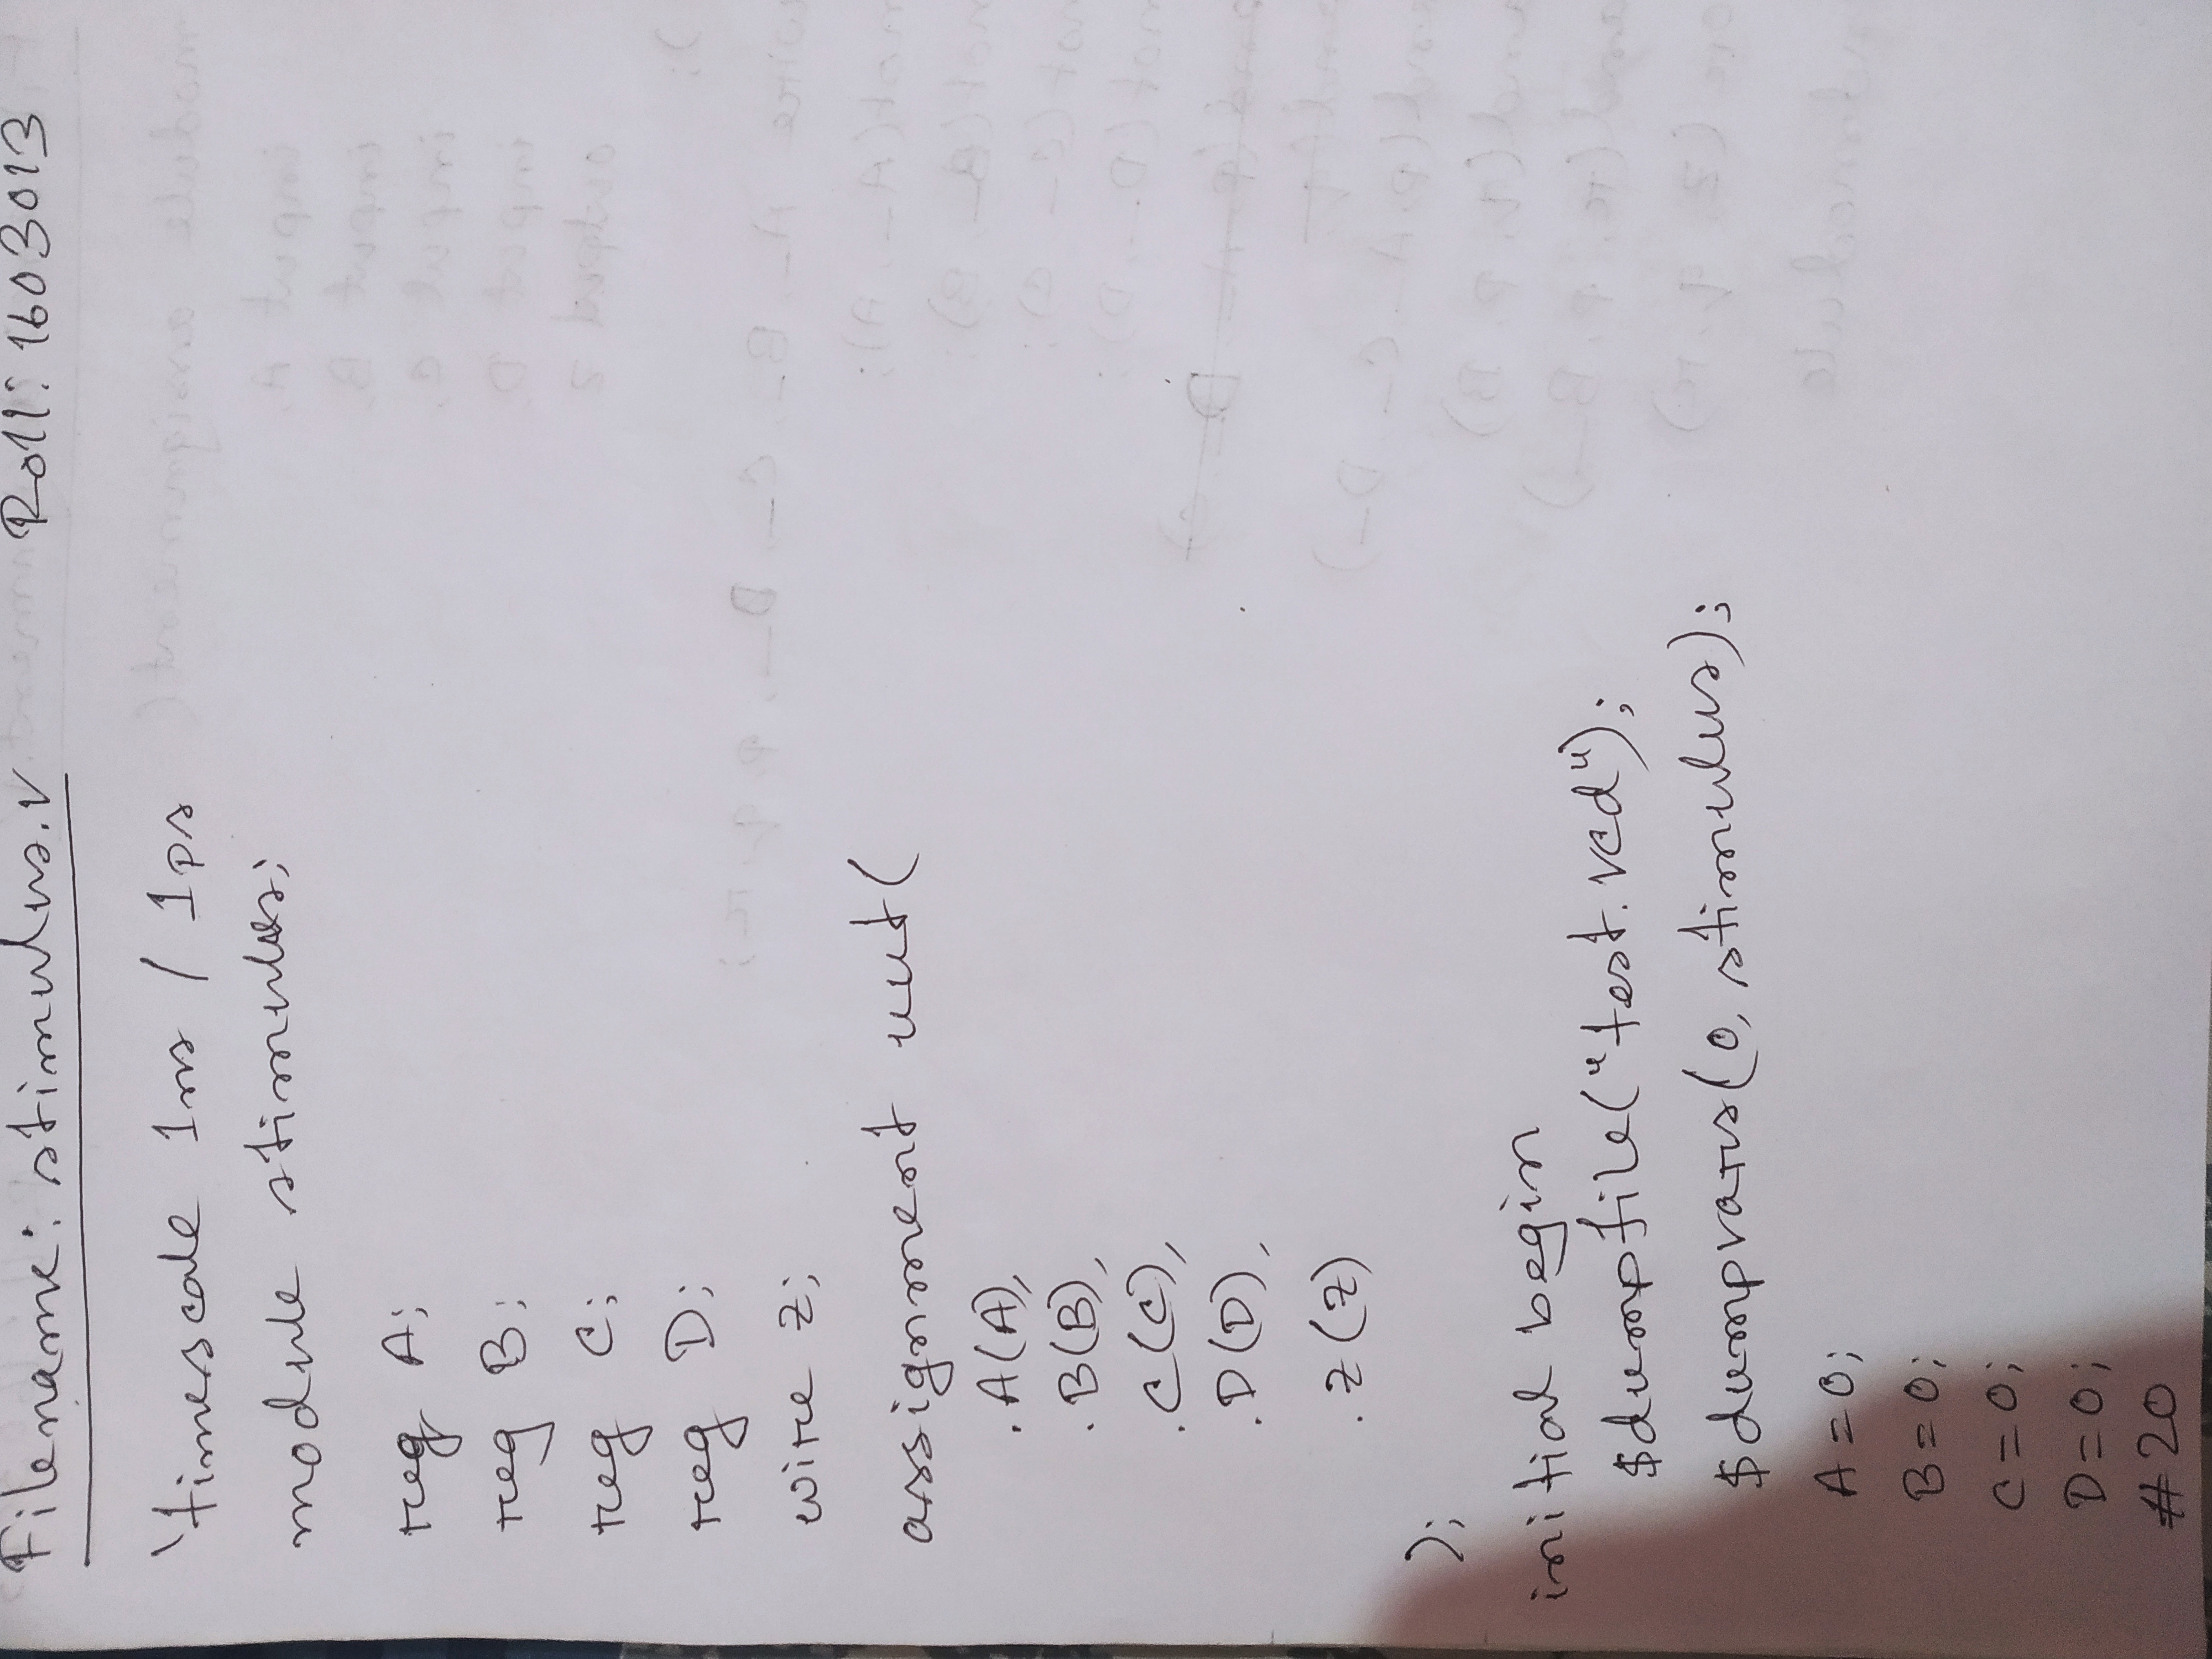 Filename: stimulus.v Roll: 1603013
`timescale 1ns / 1ps
module stimulus;
reg A;
reg B;
reg C;
reg D;
wire z;
assignment uut(
.A(A),
.B(B),
.C(C),
.D(D),
.z(z)
);
initial begin
$dumpfile("test.vcd");
$dumpvars(0, stimulus);
A=0;
B=0;
C=0;
D=0;
#20